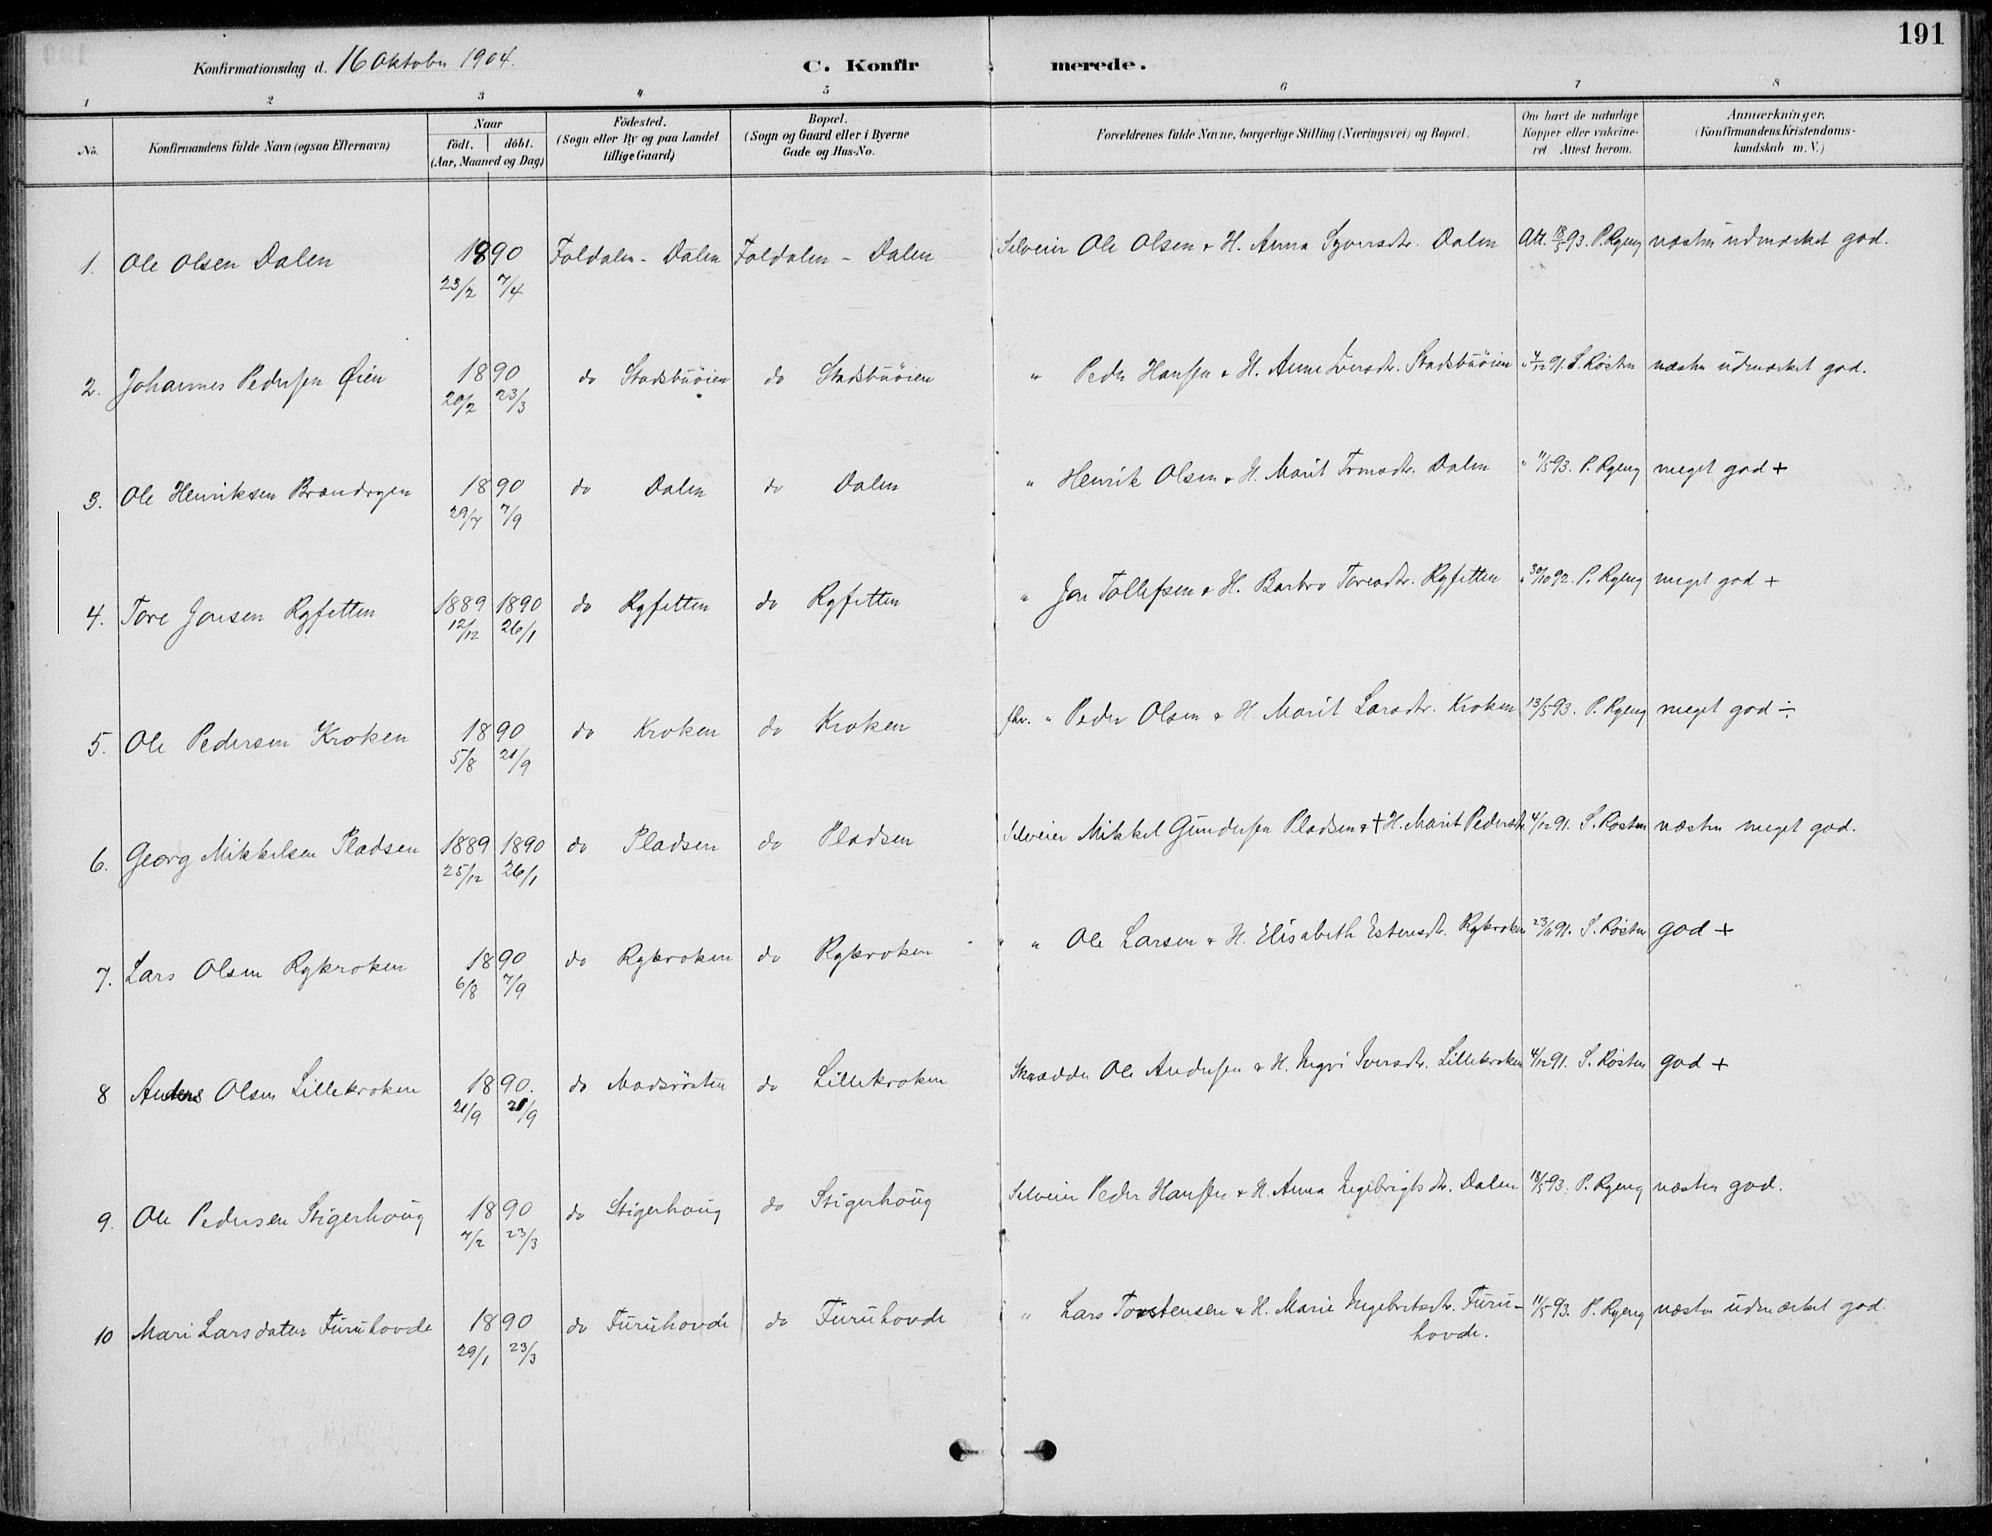 191
Konfirmationsdag d. 16 Oktober 1904.
C. Konfirmerede.
1 2 3 4 5 6 7 8
No. Konfirmandens fulde Navn (ogsaa Efternavn) Naar födt. döbt. (Aar, Maaned og Dag) Födested. (Sogn eller By og paa Landet tillige Gaard) Bopæl. (Sogn og Gaard eller i Byerne Gade og Hus-No. Forældrenes fulde Navne, borgerlige Stilling (Næringsvei) og Bopæl. Om havt de naturlige Kopper eller vakcineret. Attest herom. Anmærkninger. (Konfirmandens Kristendomskundskab m. V.)
1. Ole Olsen Dalen 1890 23/2 7/4 Foldalen - Dalen Foldalen - Dalen Selveier Ole Olsen & H. Anna Syversdtr. Dalen Att. 18/5 93. P. Ryeng næsten udmærket god.
2. Johannes Pedersen Øien 1890 20/2 23/3 do Stadsbuöien do Stadsbuöien " Peder Hansen & H. Anne Iversdtr. Stadsbuöien " 4/12 91. S. Rösten næsten udmærket god.
3. Ole Henriksen Brændryen 1890 29/7 7/9 do Dalen do Dalen " Henrik Olsen & H. Marit Dalen " 11/5 93. P. Ryeng meget god +
4. Tore Jonsen Ryfetten 1889 1890 12/12 26/1 do Ryfetten do Ryfetten " Jon Tollefsen & H. Barbro Toresdtr. Ryfetten " 30/10 92. P. Ryeng meget god +
5. Ole Pedersen Kroken 1890 5/8 21/9 do Kroken do Kroken " Peder Olsen & H. Marit Larsdtr. Kroken 13/5 93. P. Ryeng meget god ÷
6. Georg Mikkelsen Pladsen 1889 1890 25/12 26/1 do Pladsen do Pladsen Selveier Mikkel Gundersen Pladsen & + H. Marit Pedersdtr. 4/12 91. S. Rosten næsten meget god.
7. Lars Olsen Rykroken 1890 6/8 7/9 do Rykroken do Rykroken " " Ole Larsen & H. Elisabeth Estensdtr. Rykroken 23/11 91. S. Rösten god +
8 Anders Olsen Lillekroken 1890. 21/9 21/9 do Madsrösten do Lillekroken Skrædder Ole Andersen & H. Ingri Iversdtr. Lillekroken 4/12 91. S. Rösten god +
9. Ole Pedersen Stigerhoug 1890 7/2 23/3 do Stigerhoug do Stigerhoug Selveier Peder Hansen & H. Anna Ingebrigtsdtr. Dalen 18/5 93. P. Ryeng næsten god.
10 Mari Larsdatter Furuhovde 1890 29/1 23/3 do Furuhovde do Furuhovde " Lars Torstensen & H. Marie Ingebretsdtr. Furu-
hovde. 11/5 93. P. Ryeng næsten udmærket god.